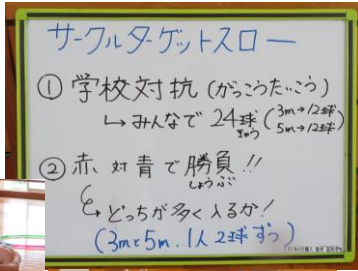 サークルターゲットスロー
① 学校対抗 (がっこうたいこう)
↳ みんなで 24球 (3m→12球
5m→12球)
きゅう
② 赤対青で勝負!!
しょうぶ
↳ どっちが多く入るか!
(3mと5m. 1人2球ずつ)